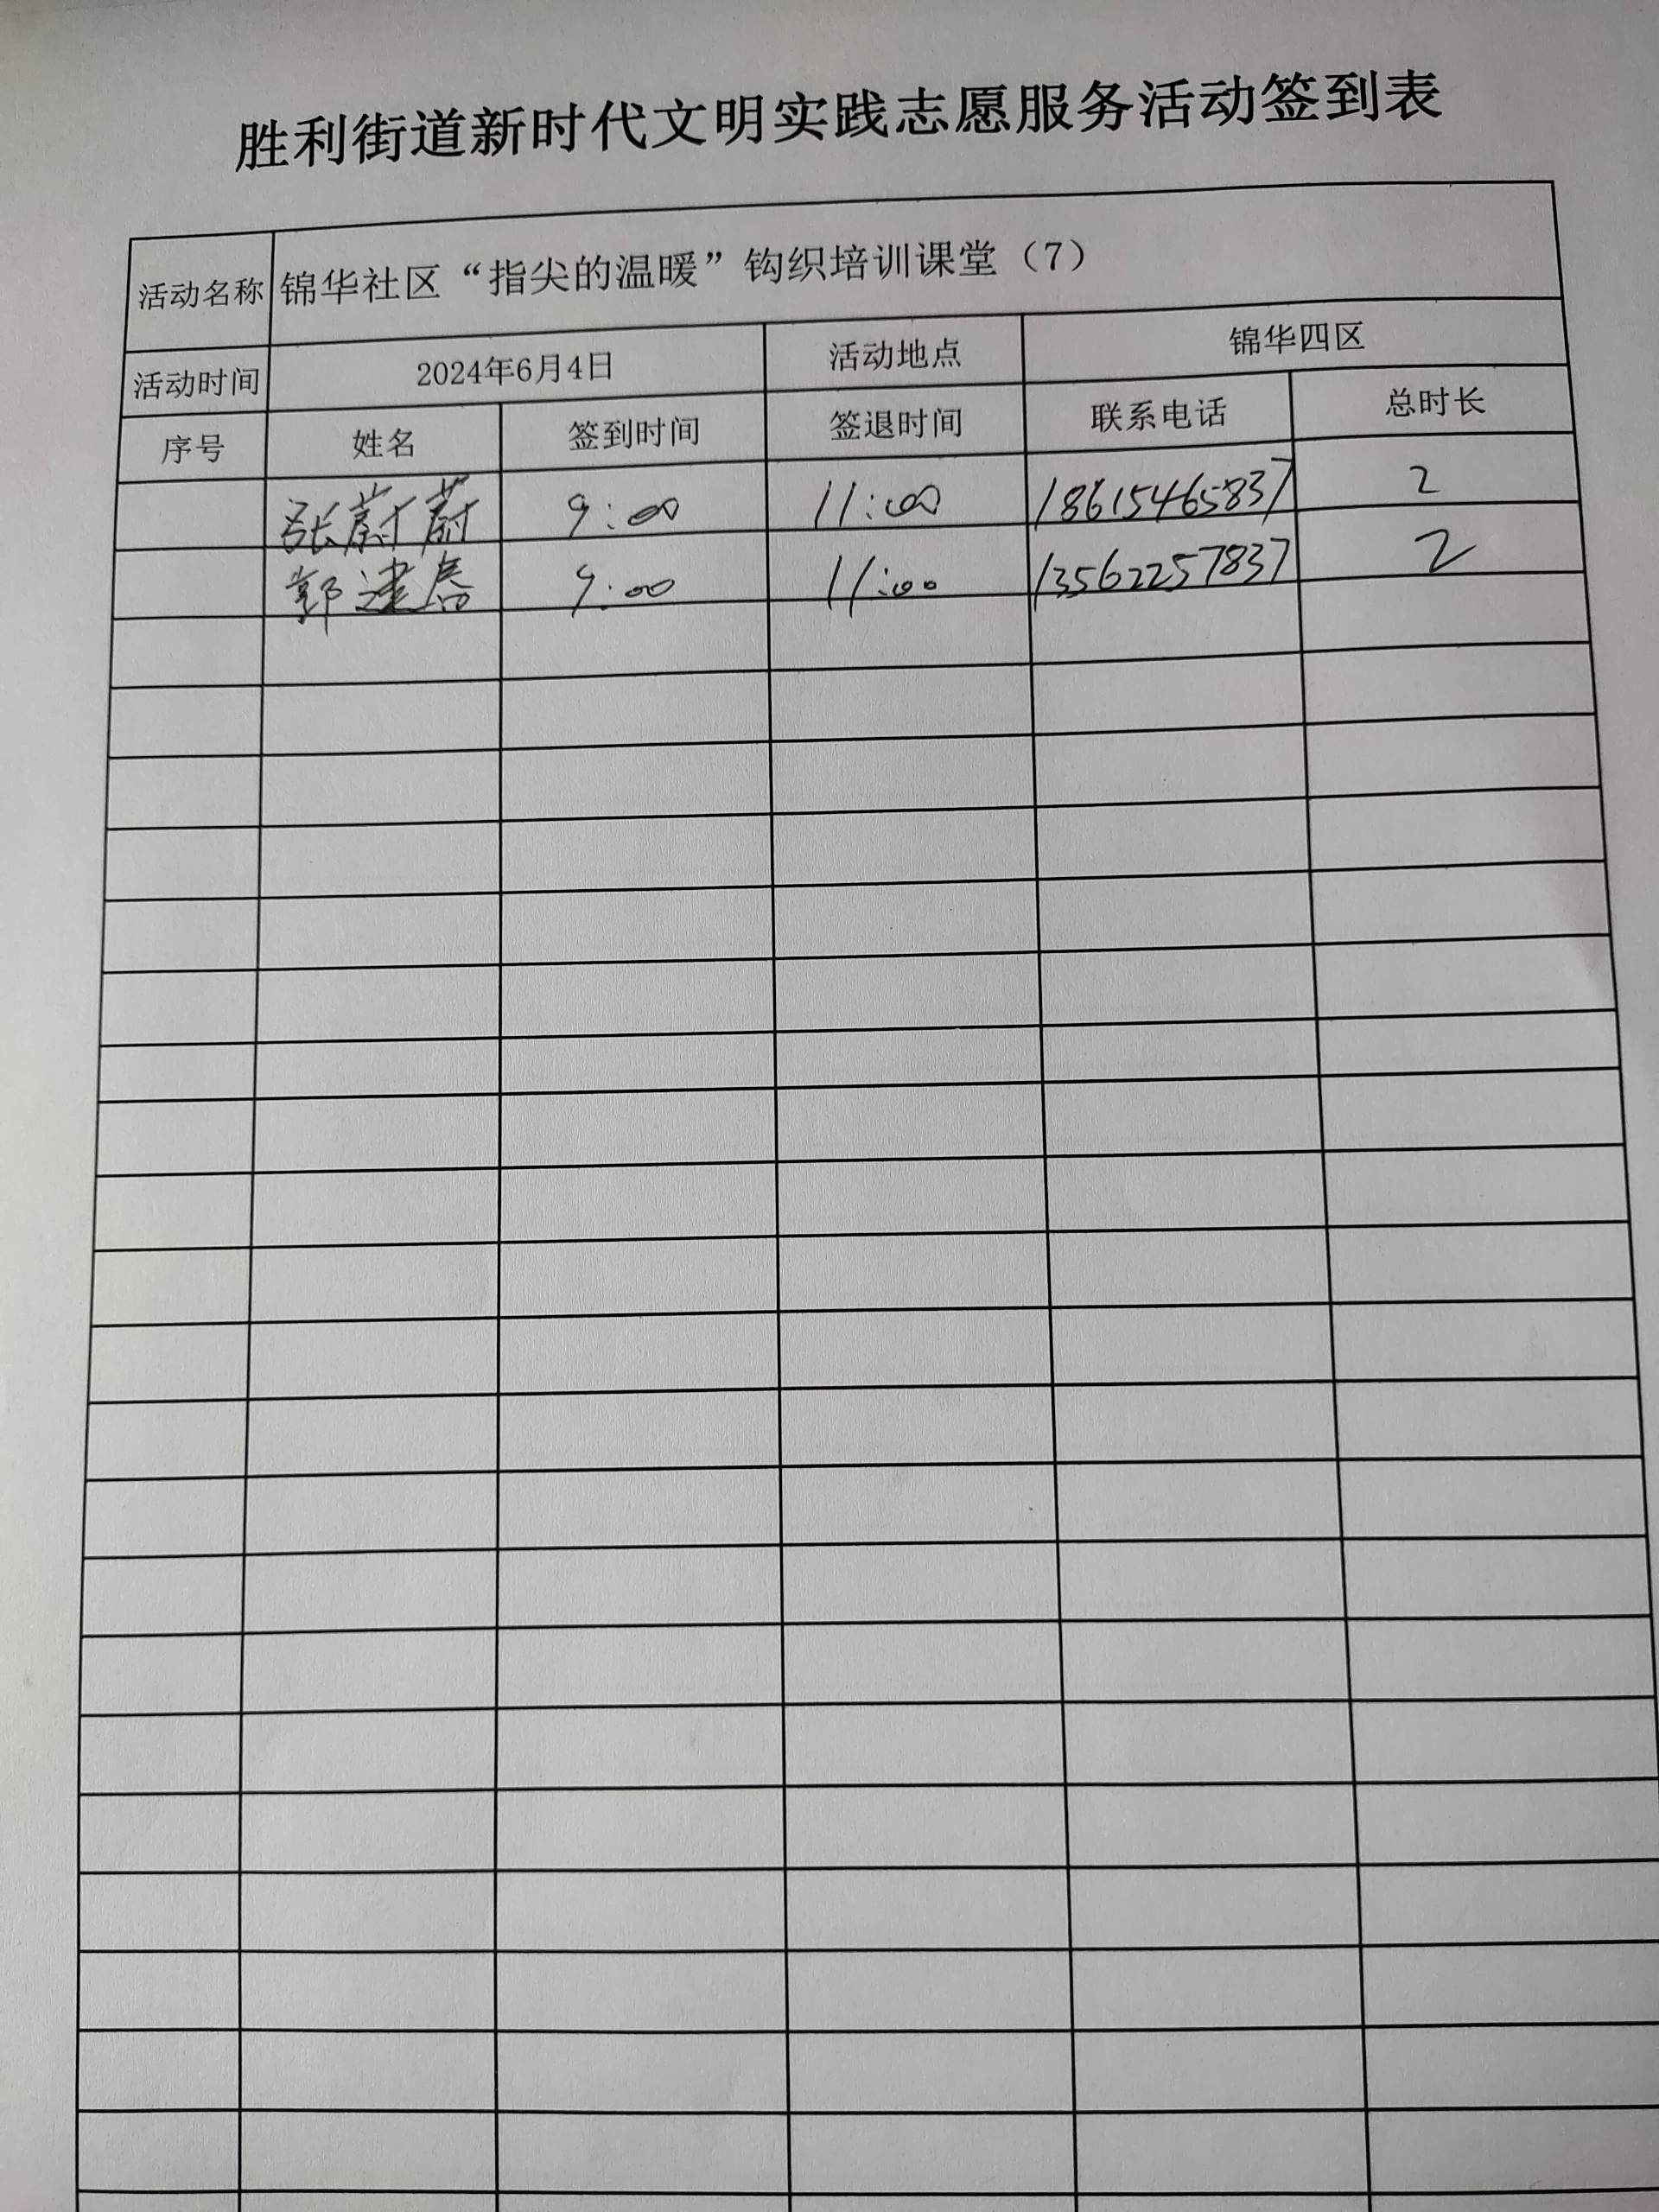 胜利街道新时代文明实践志愿服务活动签到表
活动名称 锦华社区“指尖的温暖”钩织培训课堂（7）
活动时间 2024年6月4日 活动地点 锦华四区
序号 姓名 签到时间 签退时间 联系电话 总时长
张蔚蔚 9:00 11:00 18615465837 2
郭建春 9:00 11:00 13562257837 2